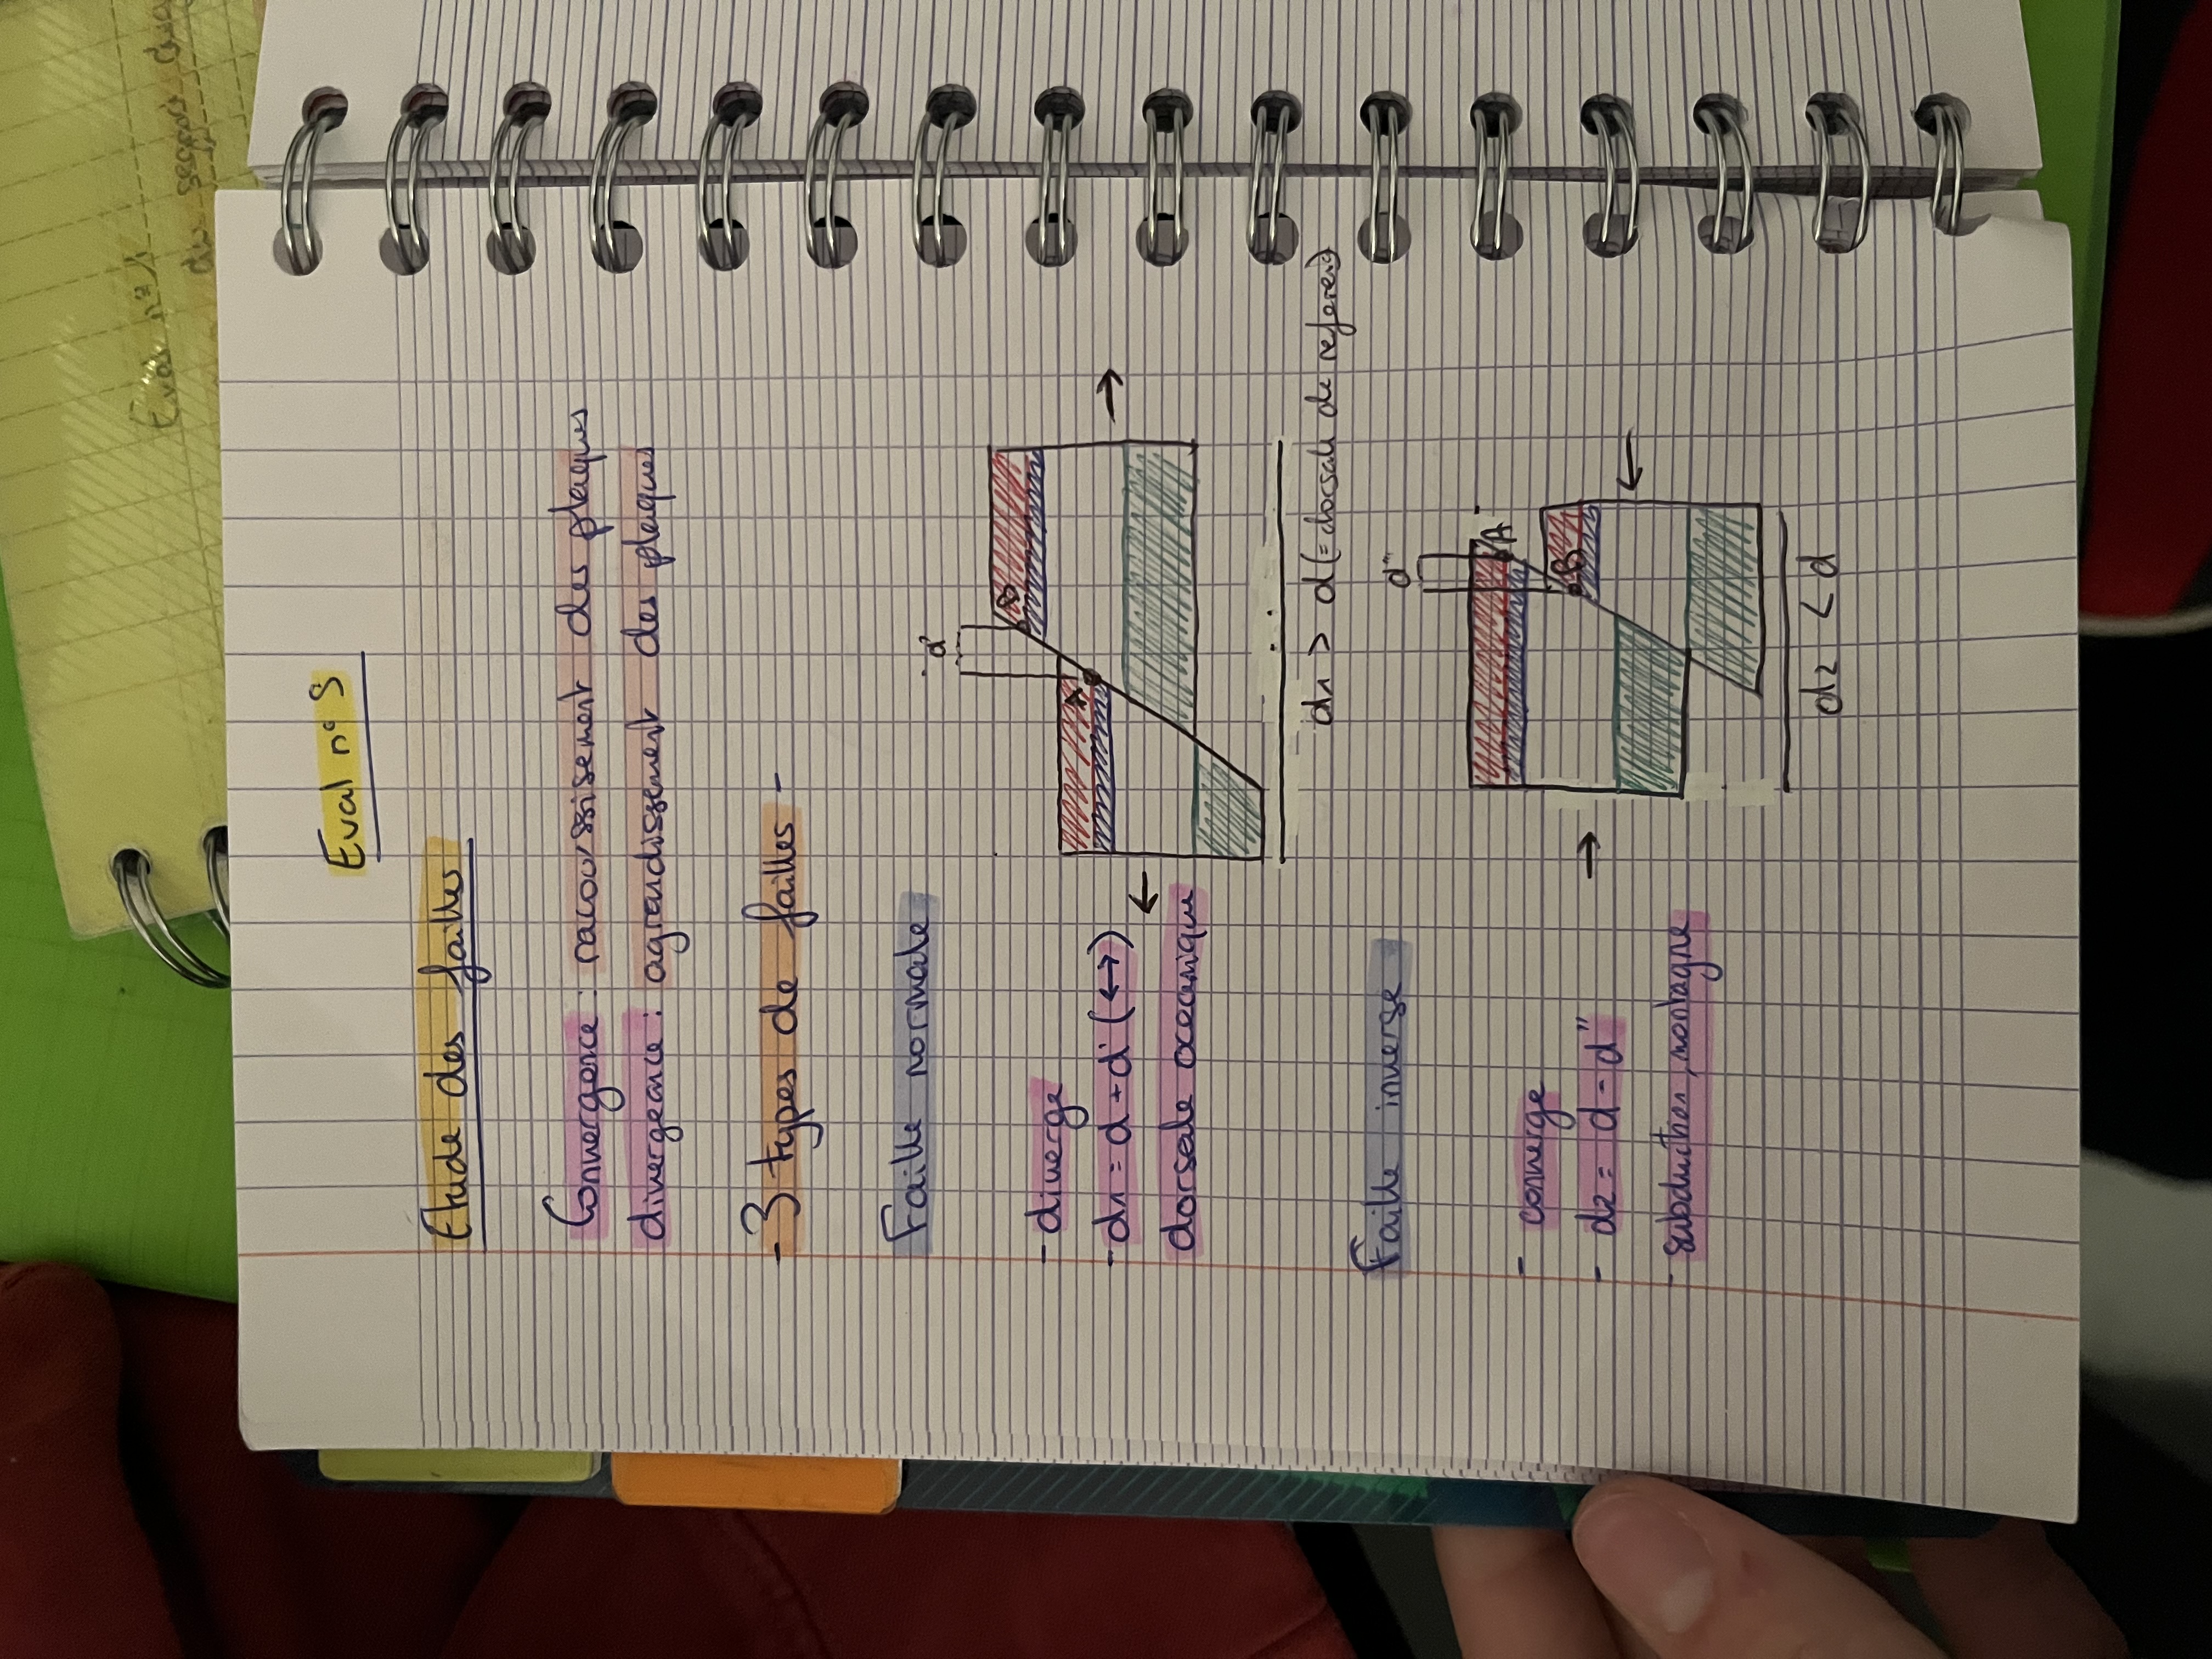 Eval n° 9
Etude des failles
Convergence : racourssisement des plaques
divergeance : agrandissement des plaques
- 3 types de failles -
Faille normale
- diverge
- d1 = d + d' (↔)
dorsale oceanique
d'
A
B
← →
d1 > d (= dorsale de referen)
Faille inverse
- converge
- d2 = d - d"
- subduction, montagne
d"
A
B
→ ←
d2 < d
Eval n°
du